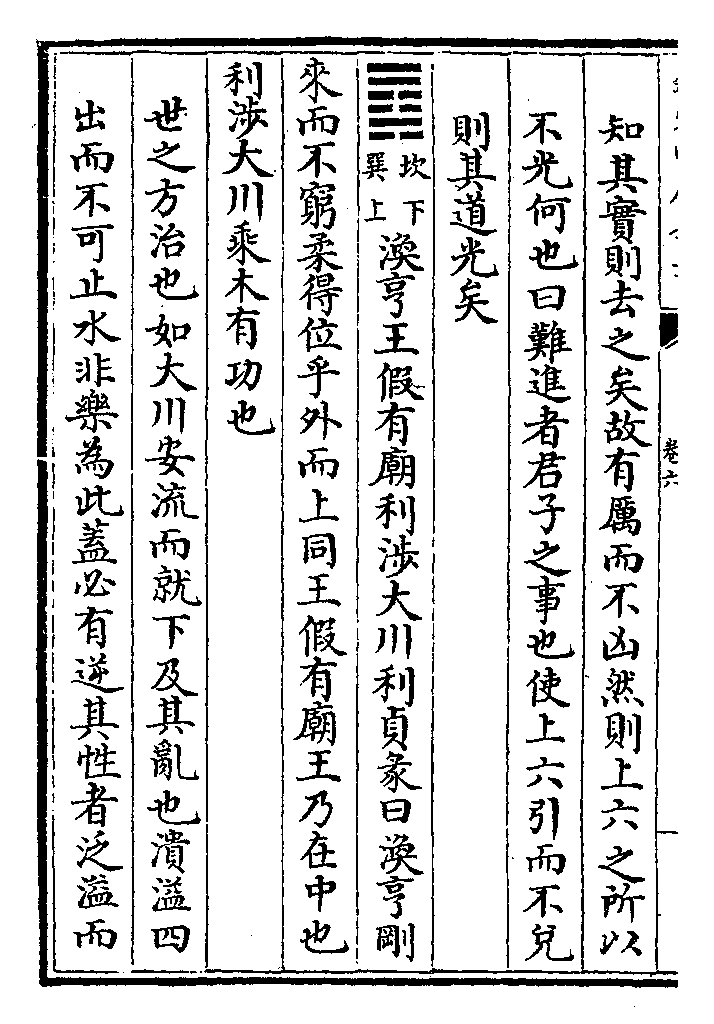 卷六
知其實則去之矣故有厲而不凶然則上六之所以
不光何也曰難進者君子之事也使上六引而不兌
則其道光矣
䷺坎下巽上渙亨王假有廟利涉大川利貞彖曰渙亨剛
來而不窮柔得位乎外而上同王假有廟王乃在中也
利涉大川乘木有功也
世之方治也如大川安流而就下及其亂也潰溢四
出而不可止水非樂為此蓋必有逆其性者泛溢而